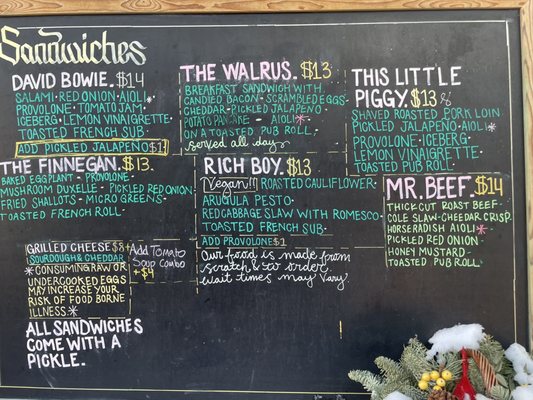 Sandwiches
DAVID BOWIE. $14
SALAMI · RED ONION · AIOLI *
PROVOLONE · TOMATO JAM
ICEBERG · LEMON VINAIGRETTE
TOASTED FRENCH SUB
ADD PICKLED JALAPEÑO $1
THE WALRUS. $13
BREAKFAST SANDWICH WITH
CANDIED BACON · SCRAMBLED EGGS
CHEDDAR · PICKLED JALAPEÑO
POTATO PANCAKE - AIOLI *
ON A TOASTED PUB ROLL.
served all day
THIS LITTLE
PIGGY. $13
SHAVED ROASTED PORK LOIN
PICKLED JALAPEÑO · AIOLI *
PROVOLONE · ICEBERG
LEMON VINAIGRETTE
TOASTED PUB ROLL
THE FINNEGAN. $13
BAKED EGGPLANT - PROVOLONE
MUSHROOM DUXELLE - PICKLED RED ONION
FRIED SHALLOTS - MICRO GREENS
TOASTED FRENCH ROLL
RICH BOY. $13
Vegan!!! ROASTED CAULIFLOWER
ARUGULA PESTO
RED CABBAGE SLAW WITH ROMESCO
TOASTED FRENCH SUB
ADD PROVOLONE $1
Our food is made from
scratch & to order.
wait times may vary
MR. BEEF. $14
THICK CUT ROAST BEEF
COLE SLAW - CHEDDAR CRISP
HORSERADISH AIOLI *
PICKLED RED ONION
HONEY MUSTARD
TOASTED PUB ROLL
GRILLED CHEESE $8
SOURDOUGH & CHEDDAR
Add Tomato
Soup Combo
+$4
* CONSUMING RAW OR
UNDERCOOKED EGGS
MAY INCREASE YOUR
RISK OF FOOD BORNE
ILLNESS *
ALL SANDWICHES
COME WITH A
PICKLE.